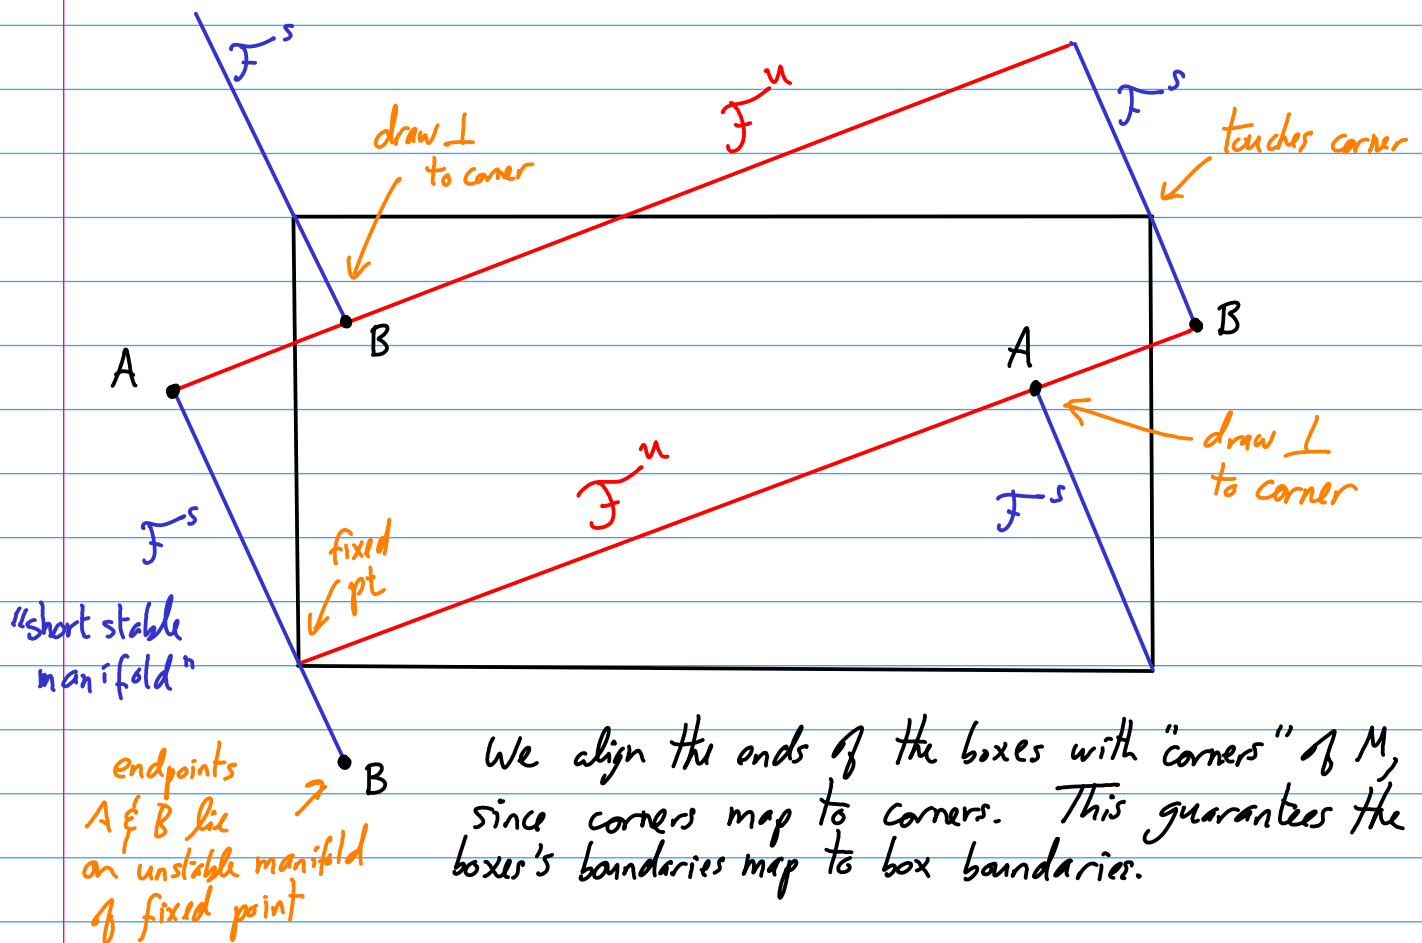 F^s
draw ⊥
to corner
F^u
F^s
touches corner
B
A
A
B
draw ⊥
to corner
F^u
F^s
F^s
fixed
pt
"short stable
manifold"
B
endpoints
A & B lie
on unstable manifold
of fixed point
We align the ends of the boxes with "corners" of M,
since corners map to corners. This guarantees the
boxes's boundaries map to box boundaries.